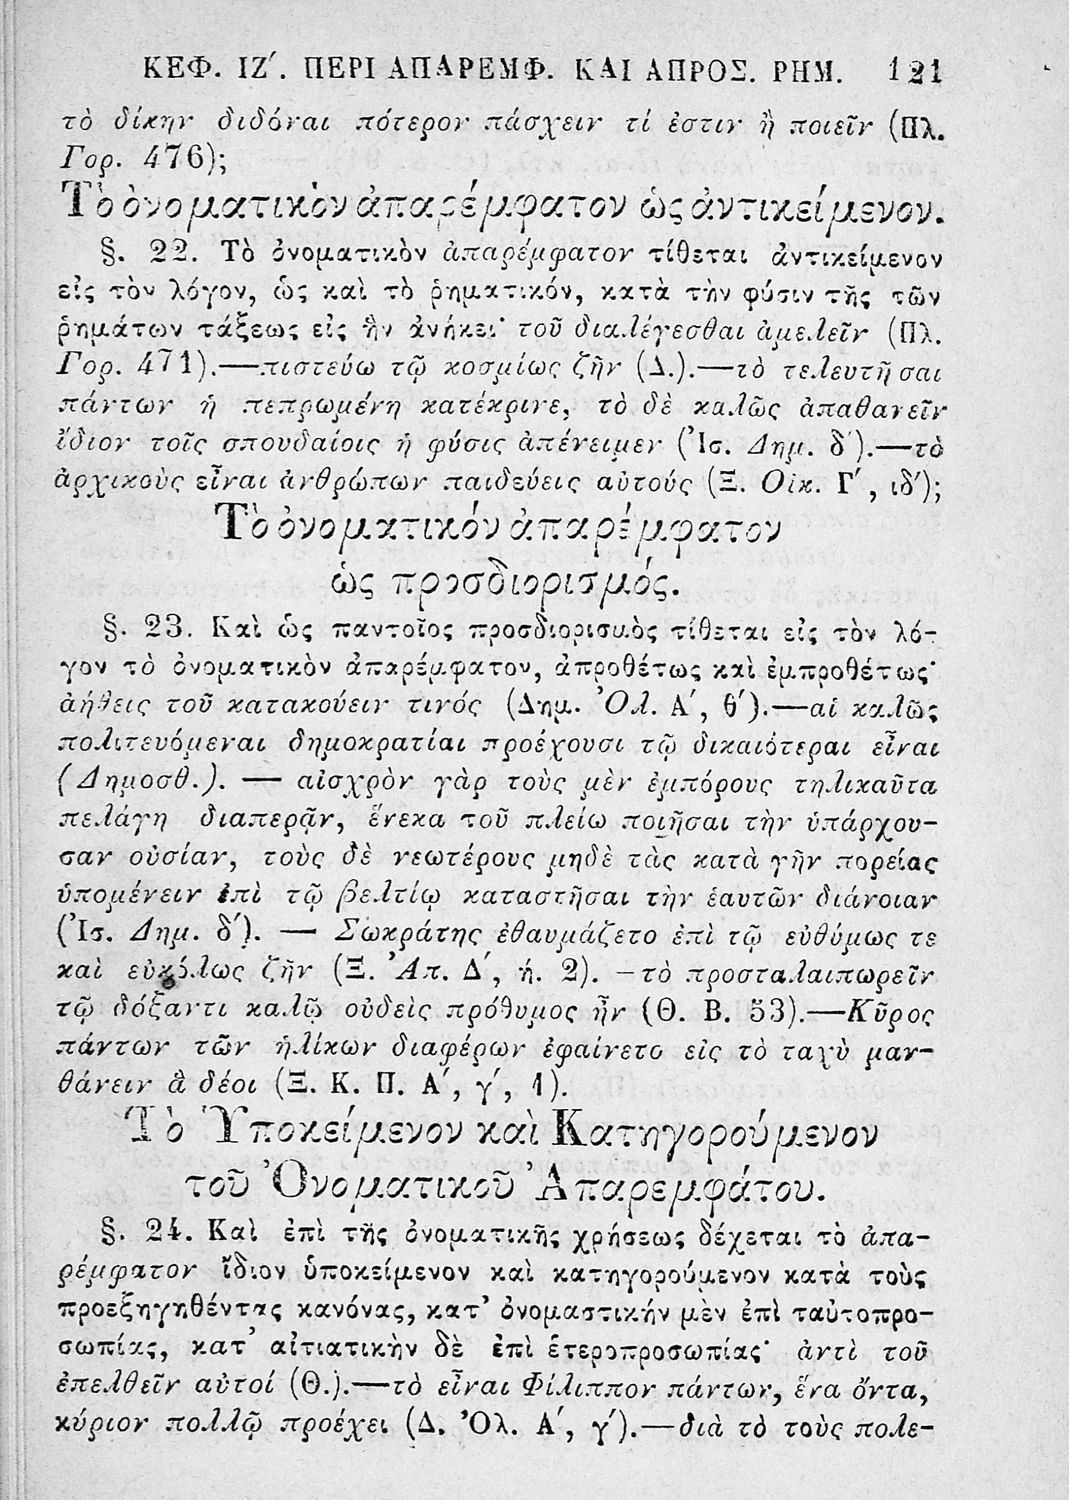 ΚΕΦ. ΙΖ´. ΠΕΡΙ ΑΠΑΡΕΜΦ. ΚΑΙ ΑΠΡΟΣ. ΡΗΜ. 121
τὸ δίκην διδόναι πότερον πάσχειν τί ἐστιν ἢ ποιεῖν (Πλ.
Γορ. 476);
Τὸ ὀνοματικὸν ἀπαρέμφατον ὡς ἀντικείμενον.
§. 22. Τὸ ὀνοματικὸν ἀπαρέμφατον τίθεται ἀντικείμενον
εἰς τὸν λόγον, ὡς καὶ τὸ ῥηματικόν, κατὰ τὴν φύσιν τῆς τῶν
ῥημάτων τάξεως εἰς ἣν ἀνήκει· τοῦ διαλέγεσθαι ἀμελεῖν (Πλ.
Γορ. 471).—πιστεύω τῷ κοσμίως ζῆν (Δ.).—τὸ τελευτῆσαι
πάντων ἡ πεπρωμένη κατέκρινε, τὸ δὲ καλῶς ἀπαθανεῖν
ἴδιον τοῖς σπουδαίοις ἡ φύσις ἀπένειμεν (Ἰσ. Δημ. δ´).—τὸ
ἀρχικοὺς εἶναι ἀνθρώπων παιδεύεις αὐτούς (Ξ. Οἰκ. Γ´, ιδ´);
Τὸ ὀνοματικόν ἀπαρέμφατον
ὡς προσδιορισμός.
§. 23. Καὶ ὡς παντοῖος προσδιορισμὸς τίθεται εἰς τὸν λό-
γον τὸ ὀνοματικὸν ἀπαρέμφατον, ἀπροθέτως καὶ ἐμπροθέτως·
ἀήθεις τοῦ κατακούειν τινός (Δημ. Ὀλ. Α´, θ´).—αἱ καλῶς
πολιτευόμεναι δημοκρατίαι προέχουσι τῷ δικαιότεραι εἶναι
(Δημοσθ.). — αἰσχρὸν γὰρ τοὺς μὲν ἐμπόρους τηλικαῦτα
πελάγη διαπερᾷν, ἕνεκα τοῦ πλείω ποιῆσαι τὴν ὑπάρχου-
σαν οὐσίαν, τοὺς δὲ νεωτέρους μηδὲ τὰς κατὰ γῆν πορείας
ὑπομένειν ἐπὶ τῷ βελτίῳ καταστῆσαι τὴν ἑαυτῶν διάνοιαν
(Ἰσ. Δημ. δ´). — Σωκράτης ἐθαυμάζετο ἐπὶ τῷ εὐθύμως τε
καὶ εὐκόλως ζῆν (Ξ. Ἀπ. Δ´, ή. 2). —τὸ προσταλαιπωρεῖν
τῷ δόξαντι καλῷ οὐδεὶς πρόθυμος ἦν (Θ. Β. 53).—Κῦρος
πάντων τῶν ἡλίκων διαφέρων ἐφαίνετο εἰς τὸ ταχὺ μαν-
θάνειν ἃ δέοι (Ξ. Κ. Π. Α´, γ´, 1).
Τὸ Ὑποκείμενον καὶ Κατηγορούμενον
τοῦ Ὀνοματικοῦ Ἀπαρεμφάτου.
§. 24. Καὶ ἐπὶ τῆς ὀνοματικῆς χρήσεως δέχεται τὸ ἀπα-
ρέμφατον ἴδιον ὑποκείμενον καὶ κατηγορούμενον κατὰ τοὺς
προεξηγηθέντας κανόνας, κατ᾽ ὀνομαστικήν μὲν ἐπὶ ταὐτοπρο-
σωπίας, κατ᾽ αἰτιατικὴν δὲ ἐπὶ ἑτεροπροσωπίας· ἀντὶ τοῦ
ἐπελθεῖν αὐτοί (Θ.).—τὸ εἶναι Φίλιππον πάντων, ἕνα ὄντα,
κύριον πολλῷ προέχει (Δ. Ὀλ. Α´, γ´).—διὰ τὸ τοὺς πολε-